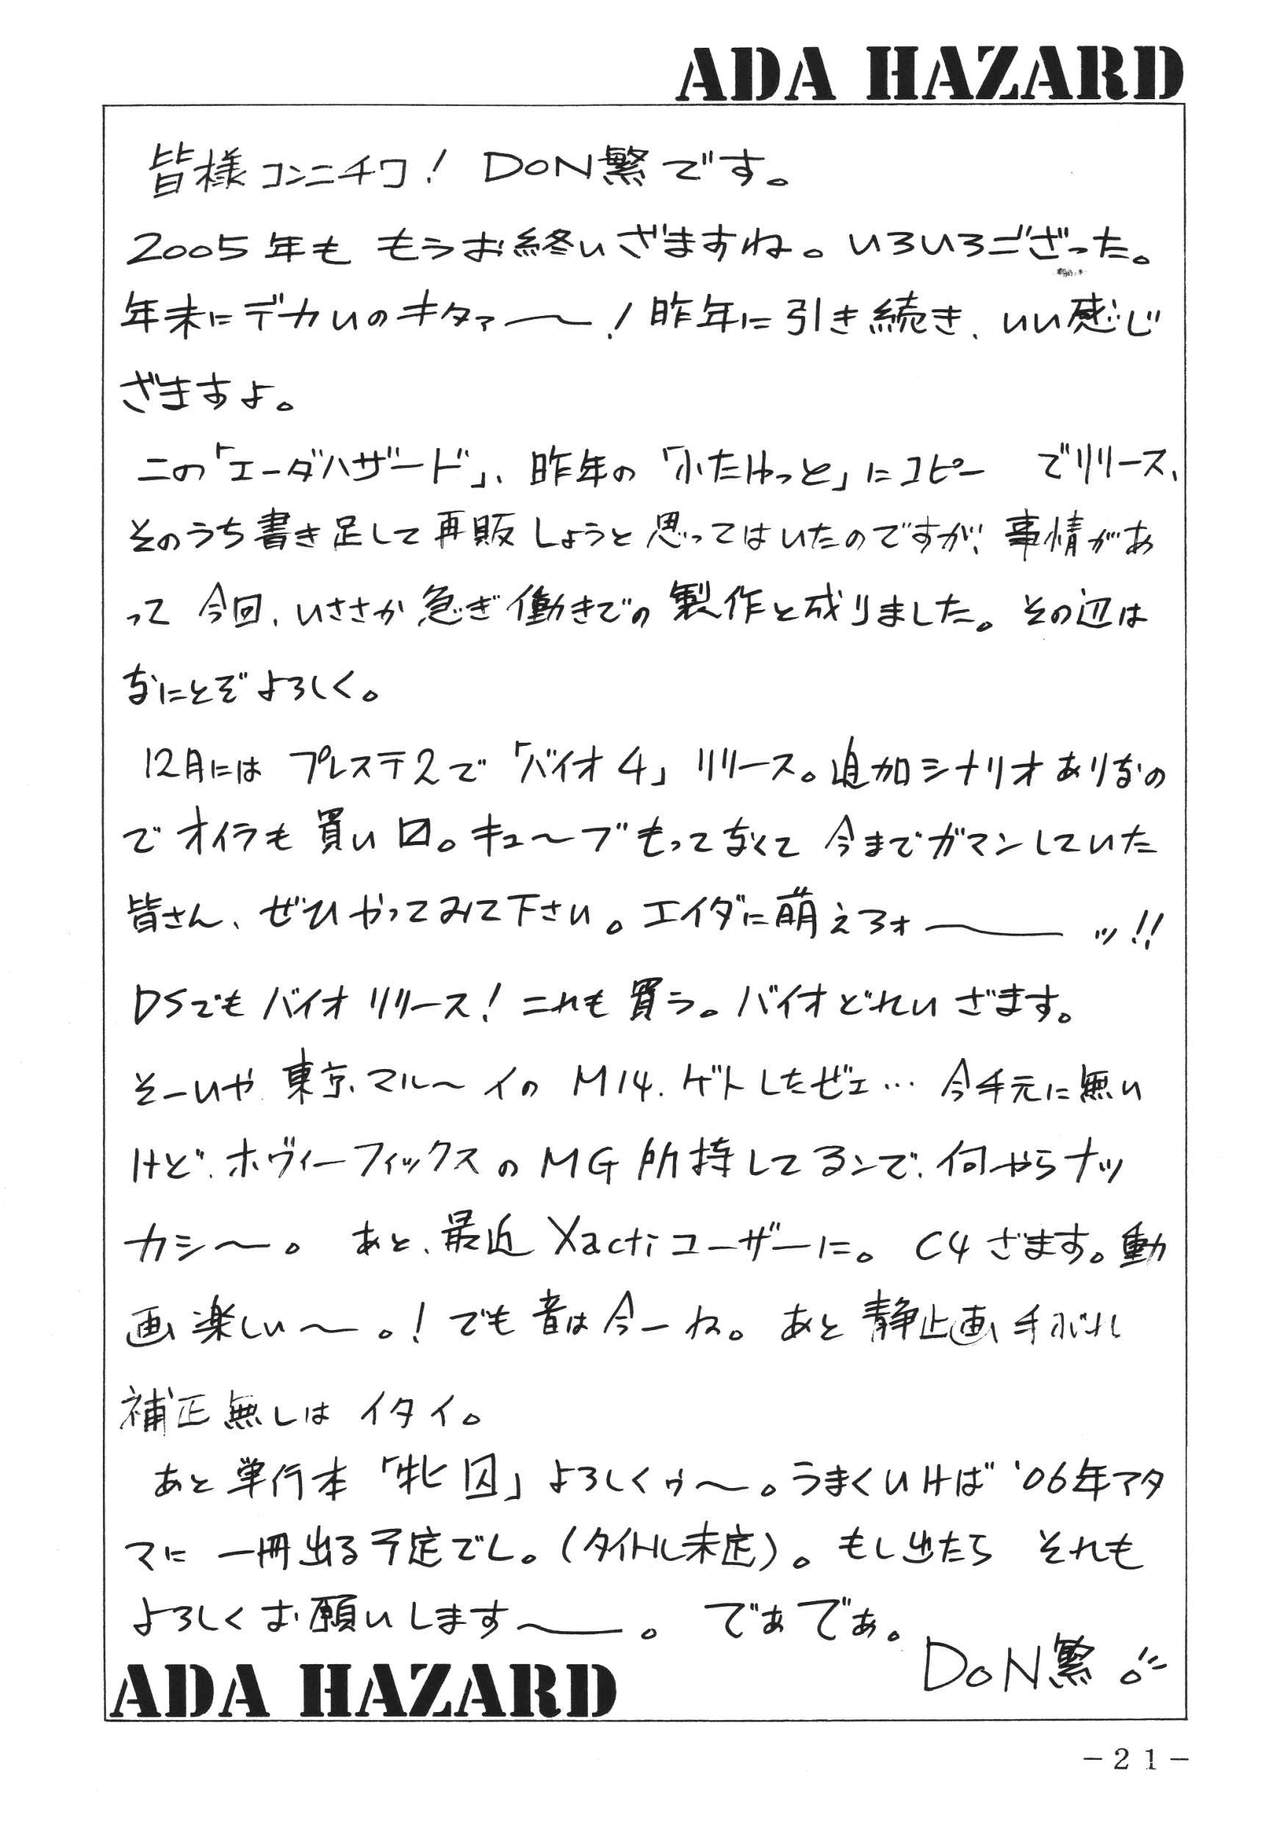 ADA HAZARD
皆様コンニチワ！ DoN繁です。
2005年も もうお終いざますね。いろいろござった。
年末にデカいのキタァ〜！昨年に引き続き、いい感じ
ざますよ。
この「エーダハザード」、昨年の「ふたけっと」にコピー でリリース、
そのうち書き足して再販しようと思ってはいたのですが、事情があ
って今回、いささか急ぎ働きでの製作と成りました。その辺は
なにとぞよろしく。
12月には プレステ2で「バイオ4」リリース。追加シナリオありなの
でオイラも買い 。キュ〜ブもってなくて今までガマンしていた
皆さん、ぜひやってみて下さい。エイダに萌えろォ〜ッ!!
DSでもバイオリリース！これも買う。バイオどれいざます。
そーいや、東京マル〜イのM14、ゲトしたぜェ… 今手元に無い
けど、ホヴィーフィックスのMG所持してるンで、何やらナツ
カシ〜。 あと、最近Xactiユーザーに。C4ざます。動
画楽しい〜。！でも音は今一ね。あと静止画手ぶれ
補正無しはイタイ。
あと単行本「牝囚」よろしくゥ〜。うまくいけば'06年アタ
マに一冊出る予定でし。(タイトル未定)。もし出たら それも
よろしくお願いします〜。 でぁでぁ。
DoN繁
ADA HAZARD
－21－